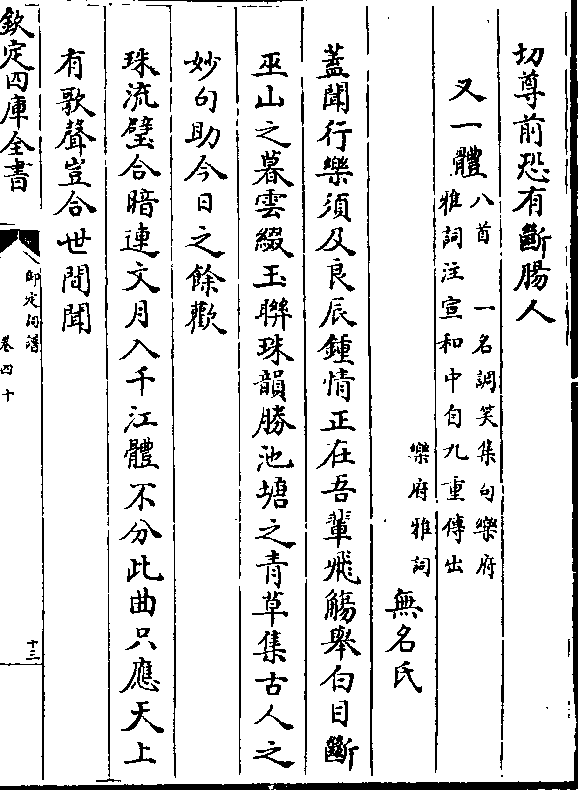 切尊前恐有斷腸人
又一體 八首 一名調笑集句樂府
雅詞注宣和中自九重傳出
樂府雅詞 無名氏
蓋聞行樂須及良辰鍾情正在吾輩飛觴舉白目斷
巫山之暮雲綴玉聨珠韻勝池塘之青草集古人之
妙句助今日之餘歡
珠流璧合暗連文月入千江體不分此曲只應天上
有歌聲豈合世間聞
欽定四庫全書
御定詞譜
卷四十
十三